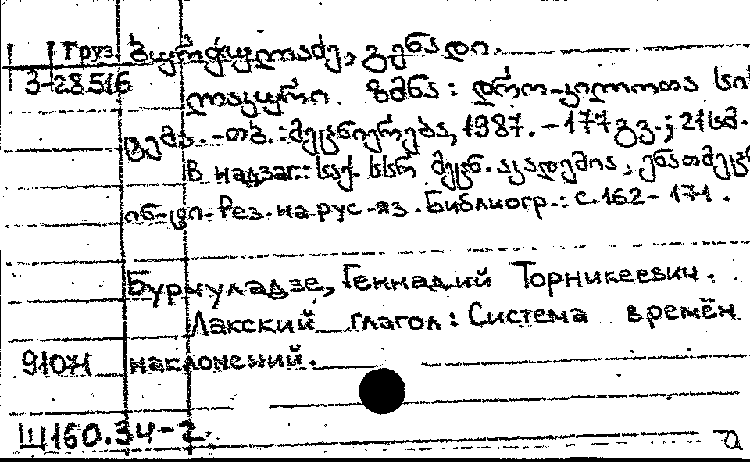 Груз. ბურჭულაძე, გენადი.
3-28.516
ლაკური ზმნა: დრო-კილოთა სის
ტემა. - თბ.: მეცნიერება, 1987. - 177 გვ.; 21 სმ. -
В надзаг.: საქ. სსრ მეცნ. აკადემია, ენათმეცნ
ინ-ტი. Рез. на рус. яз. Библиогр.: с. 162-171.
Бурчуладзе, Геннадий Торникеевич.
Лакский глагол: Система времён
91071 наклонений.
Щ160.34-2